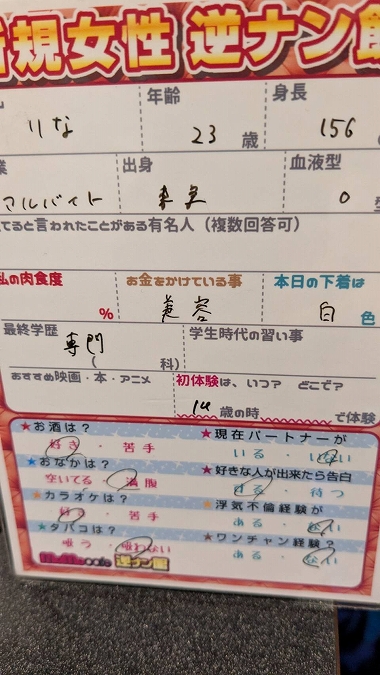 新規女性 逆ナン館
年齢 身長
りな 23 歳 156
出身 血液型
アルバイト 東京 O 型
てると言われたことがある有名人（複数回答可）
私の肉食度 お金をかけている事 本日の下着は
% 美容 白 色
最終学歴 学生時代の習い事
専門
( 科)
おすすめ映画・本・アニメ 初体験は、いつ? どこで?
歳の時 で体験
★お酒は? ★現在パートナーが
好き・苦手 いる・いない
★おなかは? ★好きな人が出来たら告白
空いてる・満腹 する・待つ
★カラオケは? ★浮気不倫経験が
好き・苦手 ある・ない
★タバコは? ★ワンチャン経験?
吸う・吸わない ある・ない
cafe 逆ナン館